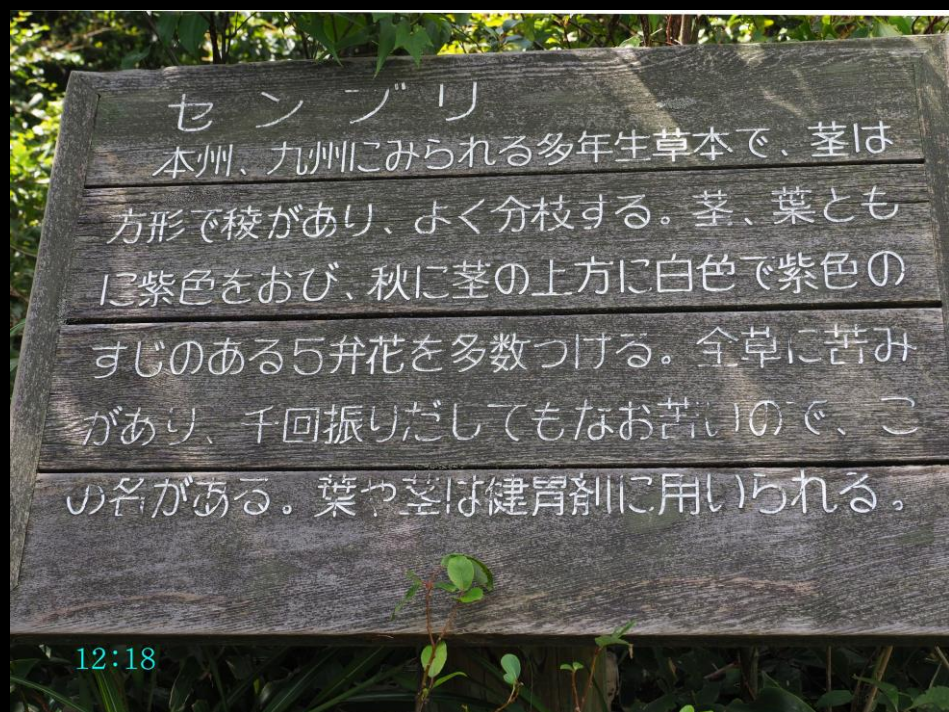 センブリ
本州、九州にみられる多年生草本で、茎は
方形で稜があり、よく分枝する。茎、葉とも
に紫色をおび、秋に茎の上方に白色で紫色の
すじのある5弁花を多数つける。全草に苦み
があり、千回振りだしてもなお苦いので、こ
の名がある。葉や茎は健胃剤に用いられる。
12:18